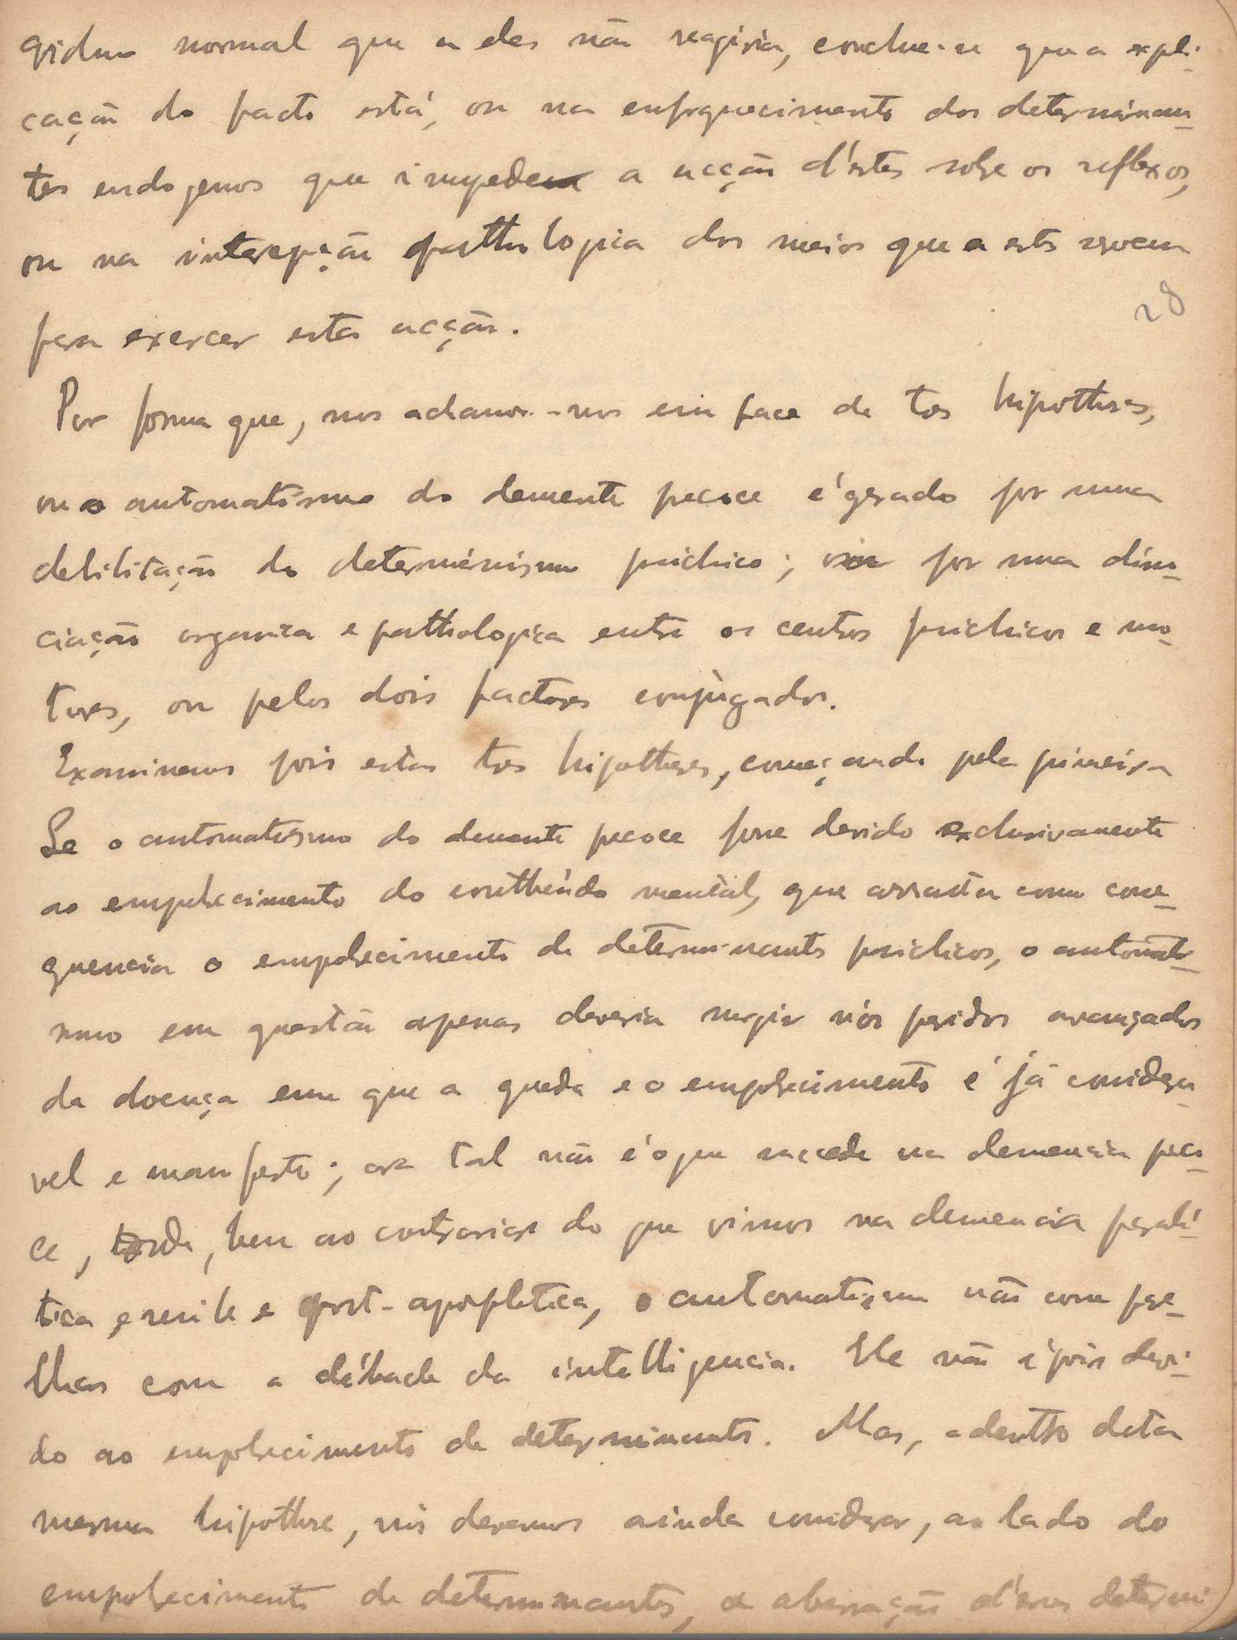 normal que a eles não reagiria, conclue-se que a expli-
cação do facto está, ou no enfraquecimento dos determinan-
tes endogenos que impedem a acção d'estes sobre os reflexos,
ou na intercepção pathologica dos meios que a estes servem
para exercer esta acção.
28
Por forma que, nos achamos-nos em face de tres hipotheses,
ou o automatismo do demente precoce é gerado por uma
debilitação do determinismo psichico; ou por uma disso-
ciação organica e pathologica entre os centros psichicos e mo-
tores, ou pelos dois factores conjugados.
Examinemos pois estas tres hipotheses, começando pela primeira
Se o automatismo do demente precoce fosse devido exclusivamente
ao empobrecimento do contheúdo mental, que arrasta como conse-
quencia o empobrecimento de determinantes psichicos, o automatis-
mo em questão apenas deveria surgir nos periodos avançados
da doença em que a queda e o empobrecimento é já considera-
vel e manifesto; ora tal não é o que succede na demencia preco-
ce, onde, bem ao contrario do que vimos na demencia parali-
tica, senil e e post-apopletica, o automatismo não corre pare-
lhas com a débacle da intelligencia. Ele não é pois devi-
do ao empobrecimento de determinantes. Mas, adentro desta
mesma hipothese, nós devemos ainda considerar, ao lado do
empobrecimento de determinantes, a aberração d'esses determi